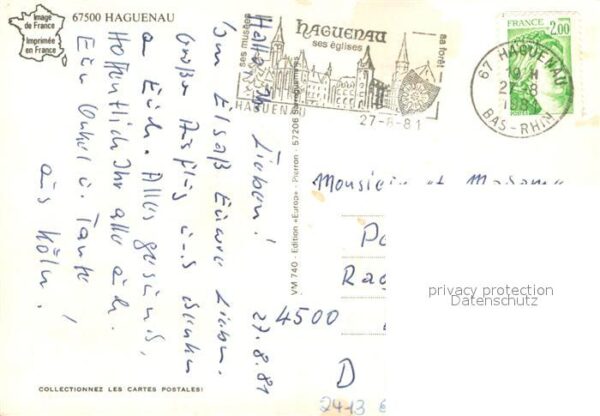 Image
de France
Imprimée
en France
67500 HAGUENAU
ses musées
HAGUENAU
ses églises
sa forêt
HAGUENAU
27-8-81
FRANCE
2,00
POSTES
67 HAGUENAU
10 H
27-8
1981
BAS-RHIN
27.8.81
Hallo, Ihr Lieben!
Im Elsaß Eurer Lieben.
Große Ausflug uns denken
an Euch. Alles gesund,
Hoffentlich Ihr alle auch.
Eur Onkel u. Tante
aus Köln!
VM 740 - Edition «Europ» - Pierron - 57206 Sarreguemines
Monsieur et Madame
4500
D
2413
privacy protection
Datenschutz
COLLECTIONNEZ LES CARTES POSTALES!